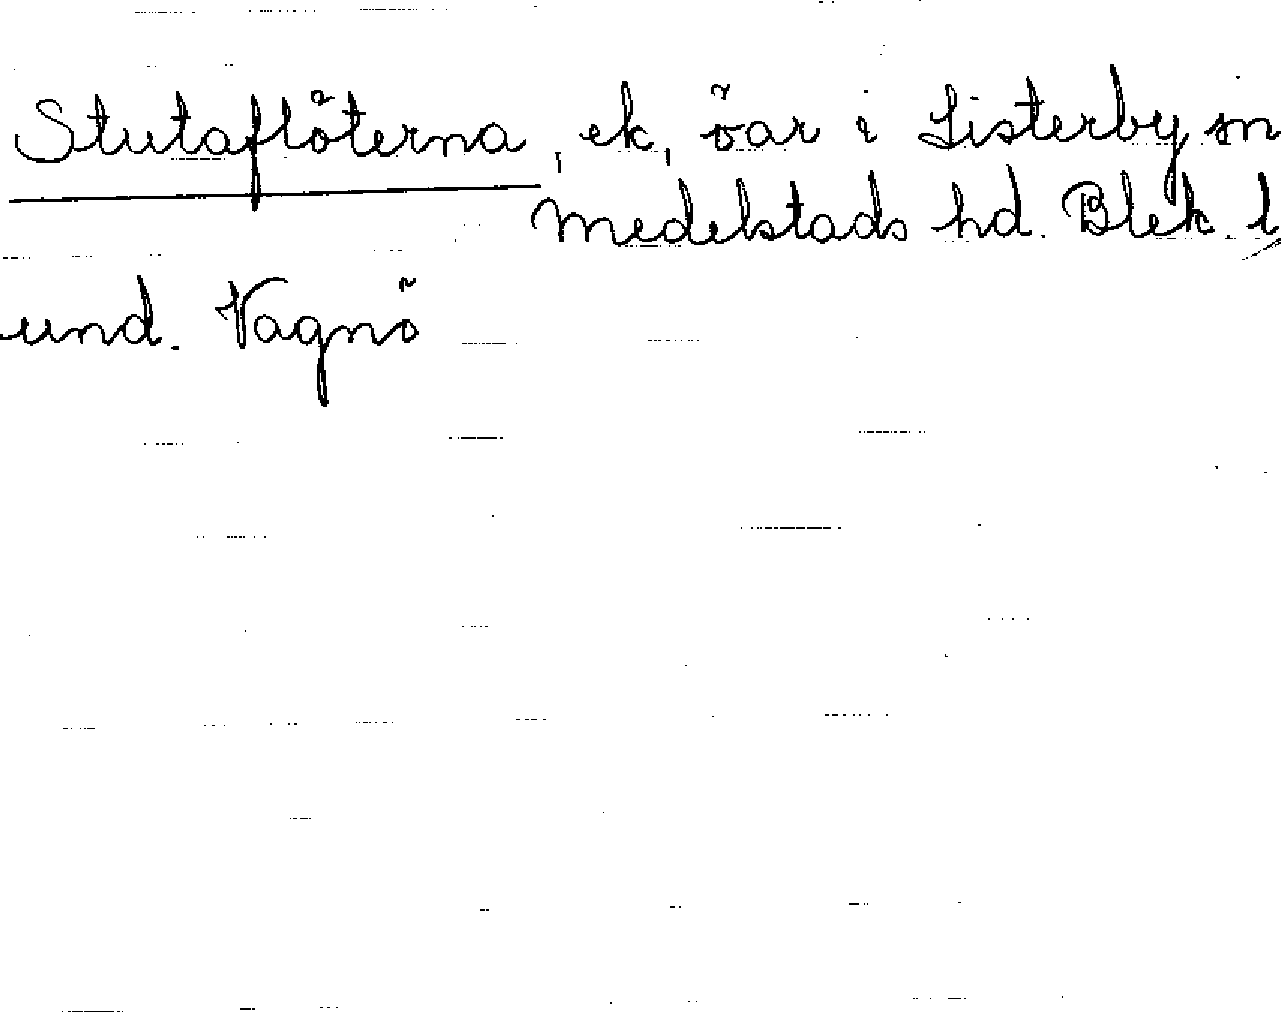 Stutaflöterna, ek, öar i Listerby sn
Medelstads hd. Blek. l.
und. Vagnö